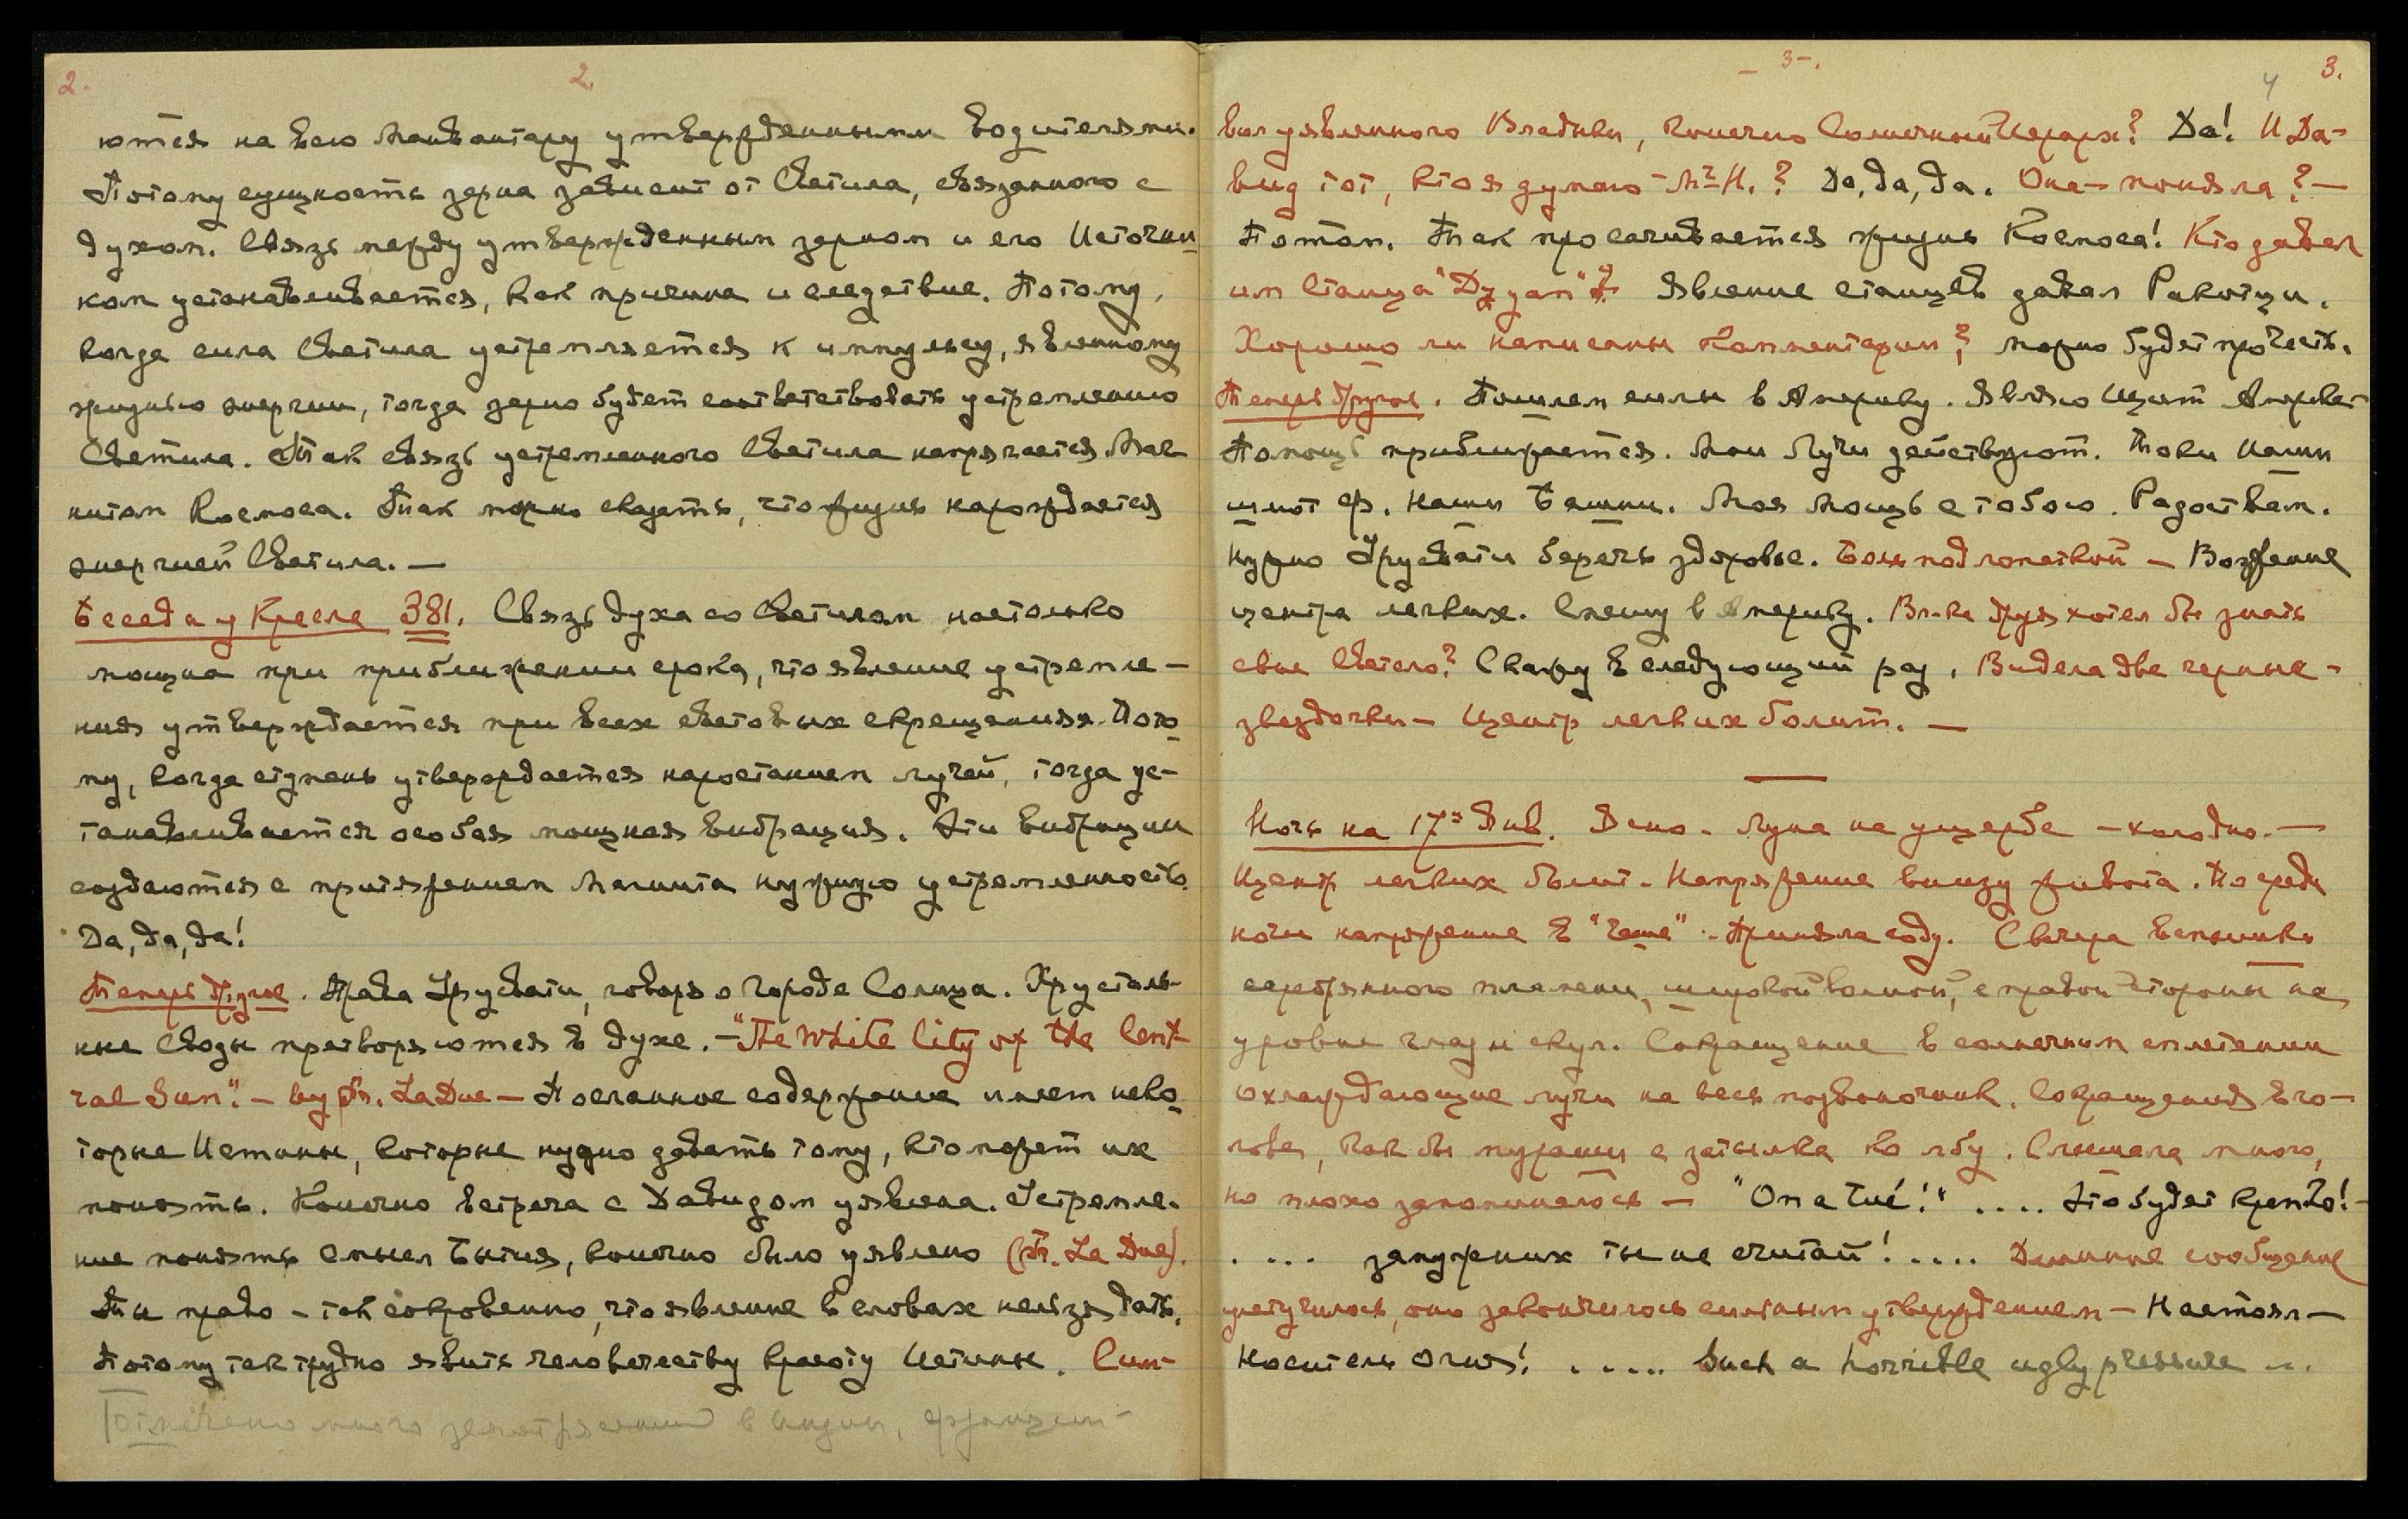 2.
2.
ются на всю Манвантару утвержденными Водителями.
Потому сущность зерна зависит от Светила, связанного с
духом. Связь между утвержденным зерном и его Источни
ком устанавливается, как причина и следствие. Потому,
когда сила Светила устремляется к импульсу, явленному
жизнью энергии, тогда зерно будет соответствовать устремлению
Светила. Так связь устремленного Светила напрягается Маг
нитом Космоса. Так можно сказать, что жизнь нарождается
энергией Светила. —
Беседа у Кресла 381. Связь духа со Светилом настолько
мощна при приближении срока, что явление устремле-
ния утверждается при всех световых скрещениях. Пото
му, когда ступень утверждается наростанием лучей, тогда ус-
танавливается особая мощная вибрация. Эти вибрации
создаются с притяжением Магнита нужную устремленность.
Да, да, да!
Теперь другое. Права Урусвати, говоря о Городе Солнца. Хрусталь-
ные Своды претворяются в духе. – "The White City of the Cent
ral Sun". – by Fr. La Due – Посланное содержание имеет неко
торые Истины, которые нужно давать тому, кто может их
понять. Конечно встреча с Давидом уявлена. Устремле-
ние понять смысл Бытия, конечно было уявлено (Fr. La Due).
Ты право – так сокровенно, что явление в словах нельзя дать.
Потому так трудно явить человечеству красоту Истины. Сим-
Отмечено много землетрясений в Индии,
– 3 –.
4
3.
вол уявленного Владыки, конечно Солнечный Иерарх? Да! И Да-
вид тот, кто я думаю – М. М.? Да, да, да. Она – поняла? –
Потом. Так просачивается жизнь Космоса! Кто давал
им Станца "Dzyan"? Явление станцев давал Ракоци.
Хорошо ли написаны комментарии? можно будет прочесть.
Теперь другое. Пошлем силы в Америку. Являю Щит Америке
Помощь приближается. Мои Лучи действуют. Токи Наши
шлют Ф. Наши Башни. Моя Мощь с тобою. Радость вам.
Нужно Урусвати беречь здоровье. Боль под лопаткой – Возжение
центра легких. Спешу в Америку. Вл-ка Яруя хотел бы знать
свое Светило? Скажу в следующий раз. Видела две черные –
звездочки – Центр легких болит. —
Ночь на 17ое Янв. Ясно. Луна на ущербе – холодно. —
Центр легких болит. Напряжение внизу живота. Посреди
ночи напряжение в "Чаше". Приняла соду. Свечера вспышки
серебряного пламени, широкой волной, с правой стороны на
уровне глаз и скул. Сокращение в солнечном сплетении
охлаждающие лучи на весь позвоночник. Сокращения в го-
лове, как бы мураши с затылка ко лбу. Слышала много,
но плохо запомнилось — "On a tué!" .... Это будет крепко! –
.... замужних ты не считай! .... Длинное сообщение
улетучилось, оно закончилось сильным утверждением — Настоял —
Носитель Огня! ..... Such a horrible ugly pressure ...